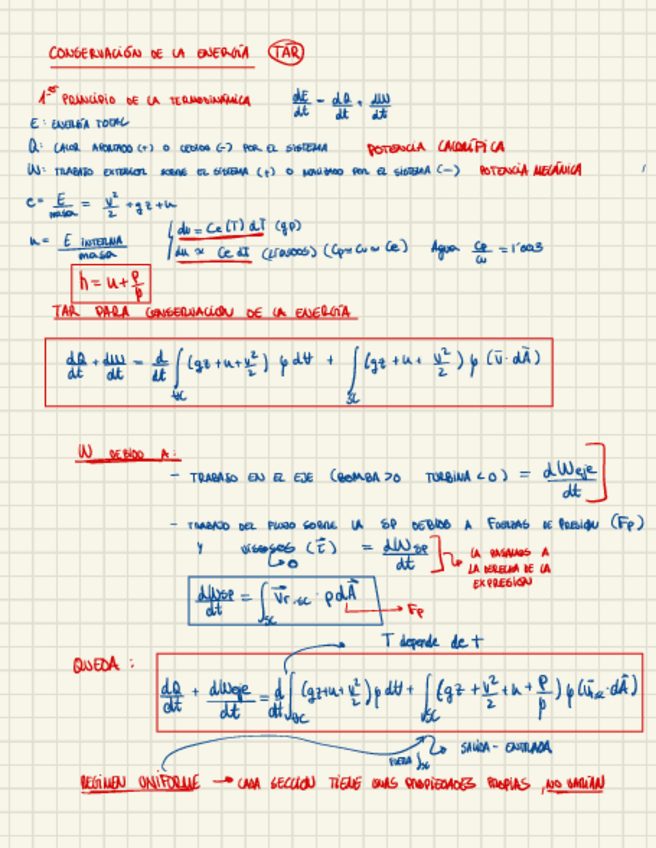 CONSERVACIÓN DE LA ENERGÍA (TAR)
1er PRINCIPIO DE LA TERMODINÁMICA dE/dt = dQ/dt + dW/dt
E: ENERGÍA TOTAL
Q: CALOR APORTADO (+) O CEDIDO (-) POR EL SISTEMA POTENCIA CALORÍFICA
W: TRABAJO EXTERIOR SOBRE EL SISTEMA (+) O REALIZADO POR EL SISTEMA (-) POTENCIA MECÁNICA
e = E/masa = v²/2 + gz + u
u = E INTERNA/masa
du = Ce(T) dT (gp)
du ≈ Ce dT (LÍQUIDOS) (Cp ≈ Cv ≈ Ce) Agua Cp/Cv = 1'003
h = u + p/ρ
TAR PARA CONSERVACIÓN DE LA ENERGÍA
dQ/dt + dW/dt = d/dt ∫VC (gz + u + v²/2) ρ dV + ∫SC (gz + u + v²/2) ρ (v̄ · dĀ)
W DEBIDO A:
- TRABAJO EN EL EJE (BOMBA > 0 TURBINA < 0) = dWeje/dt
- TRABAJO DEL FLUJO SOBRE LA SP DEBIDO A FUERZAS DE PRESIÓN (Fp)
Y VISCOSOS (τ̄) = dWsp/dt
→ 0
LA PASAMOS A
LA DERECHA DE LA
EXPRESIÓN
dWsp/dt = ∫SC v̄r,sc · p dĀ → Fp
T depende de t
QUEDA:
dQ/dt + dWeje/dt = d/dt ∫VC (gz + u + v²/2) ρ dV + ∫SC (gz + v²/2 + u + p/ρ) ρ (v̄r,sc · dĀ)
FUERA ∫SC SALIDA - ENTRADA
RÉGIMEN UNIFORME → CADA SECCIÓN TIENE UNAS PROPIEDADES PROPIAS, NO VARÍAN